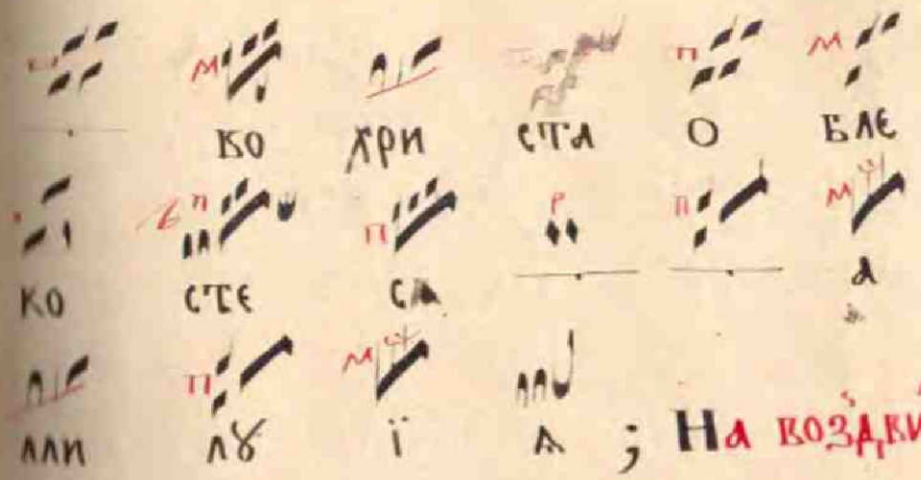 во хри ста о бле
ко сте сѧ а
лли лꙋ ї ѧ ; На воздви